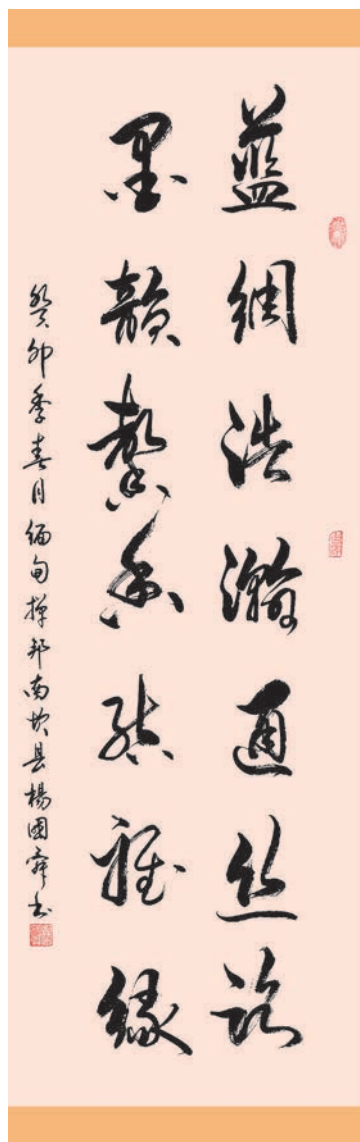 藍綢浩瀚通丝路
墨韻馨香結雅緣
癸卯季春月缅甸掸邦南坎县楊國舜书